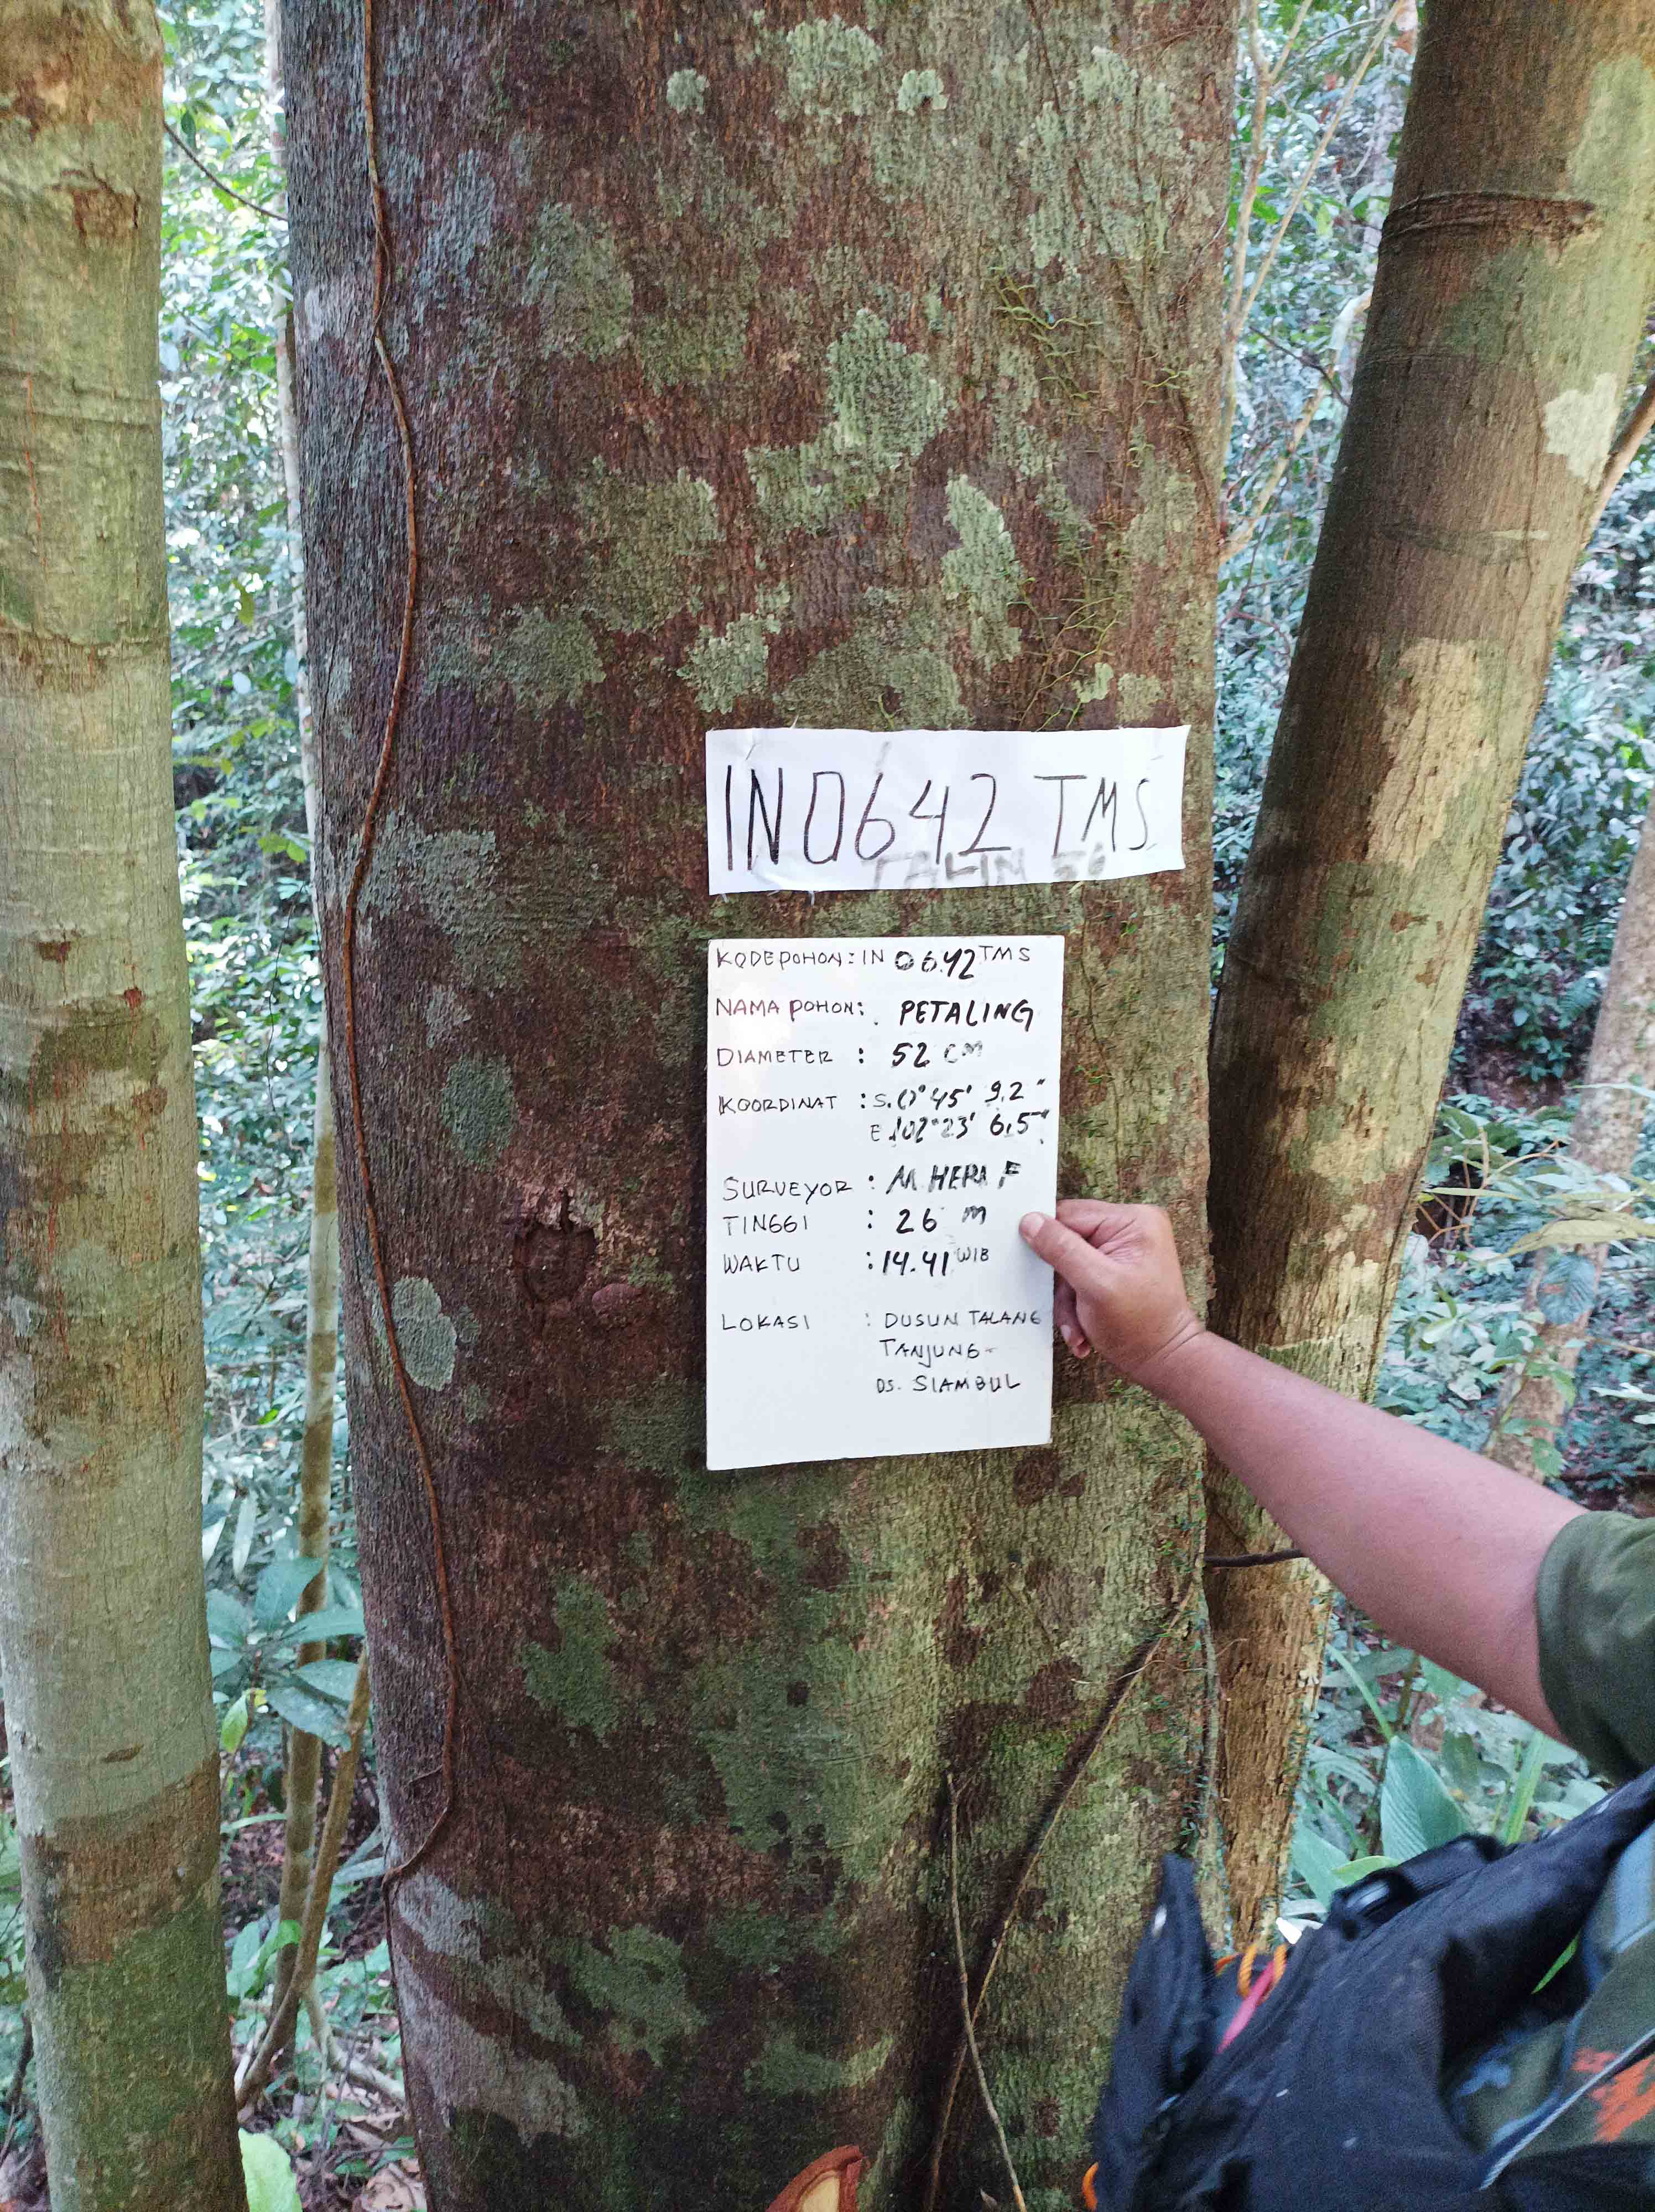 IN0642 TMS
KODE POHON: IN 0642 TMS
NAMA POHON: PETALING
DIAMETER : 52 CM
KOORDINAT : S. 0° 45' 9.2"
E 102° 23' 6.5"
SURVEYOR : M. HERI F
TINGGI : 26 M
WAKTU : 14.41 WIB
LOKASI : DUSUN TALANG
TANJUNG-
DS. SIAMBUL